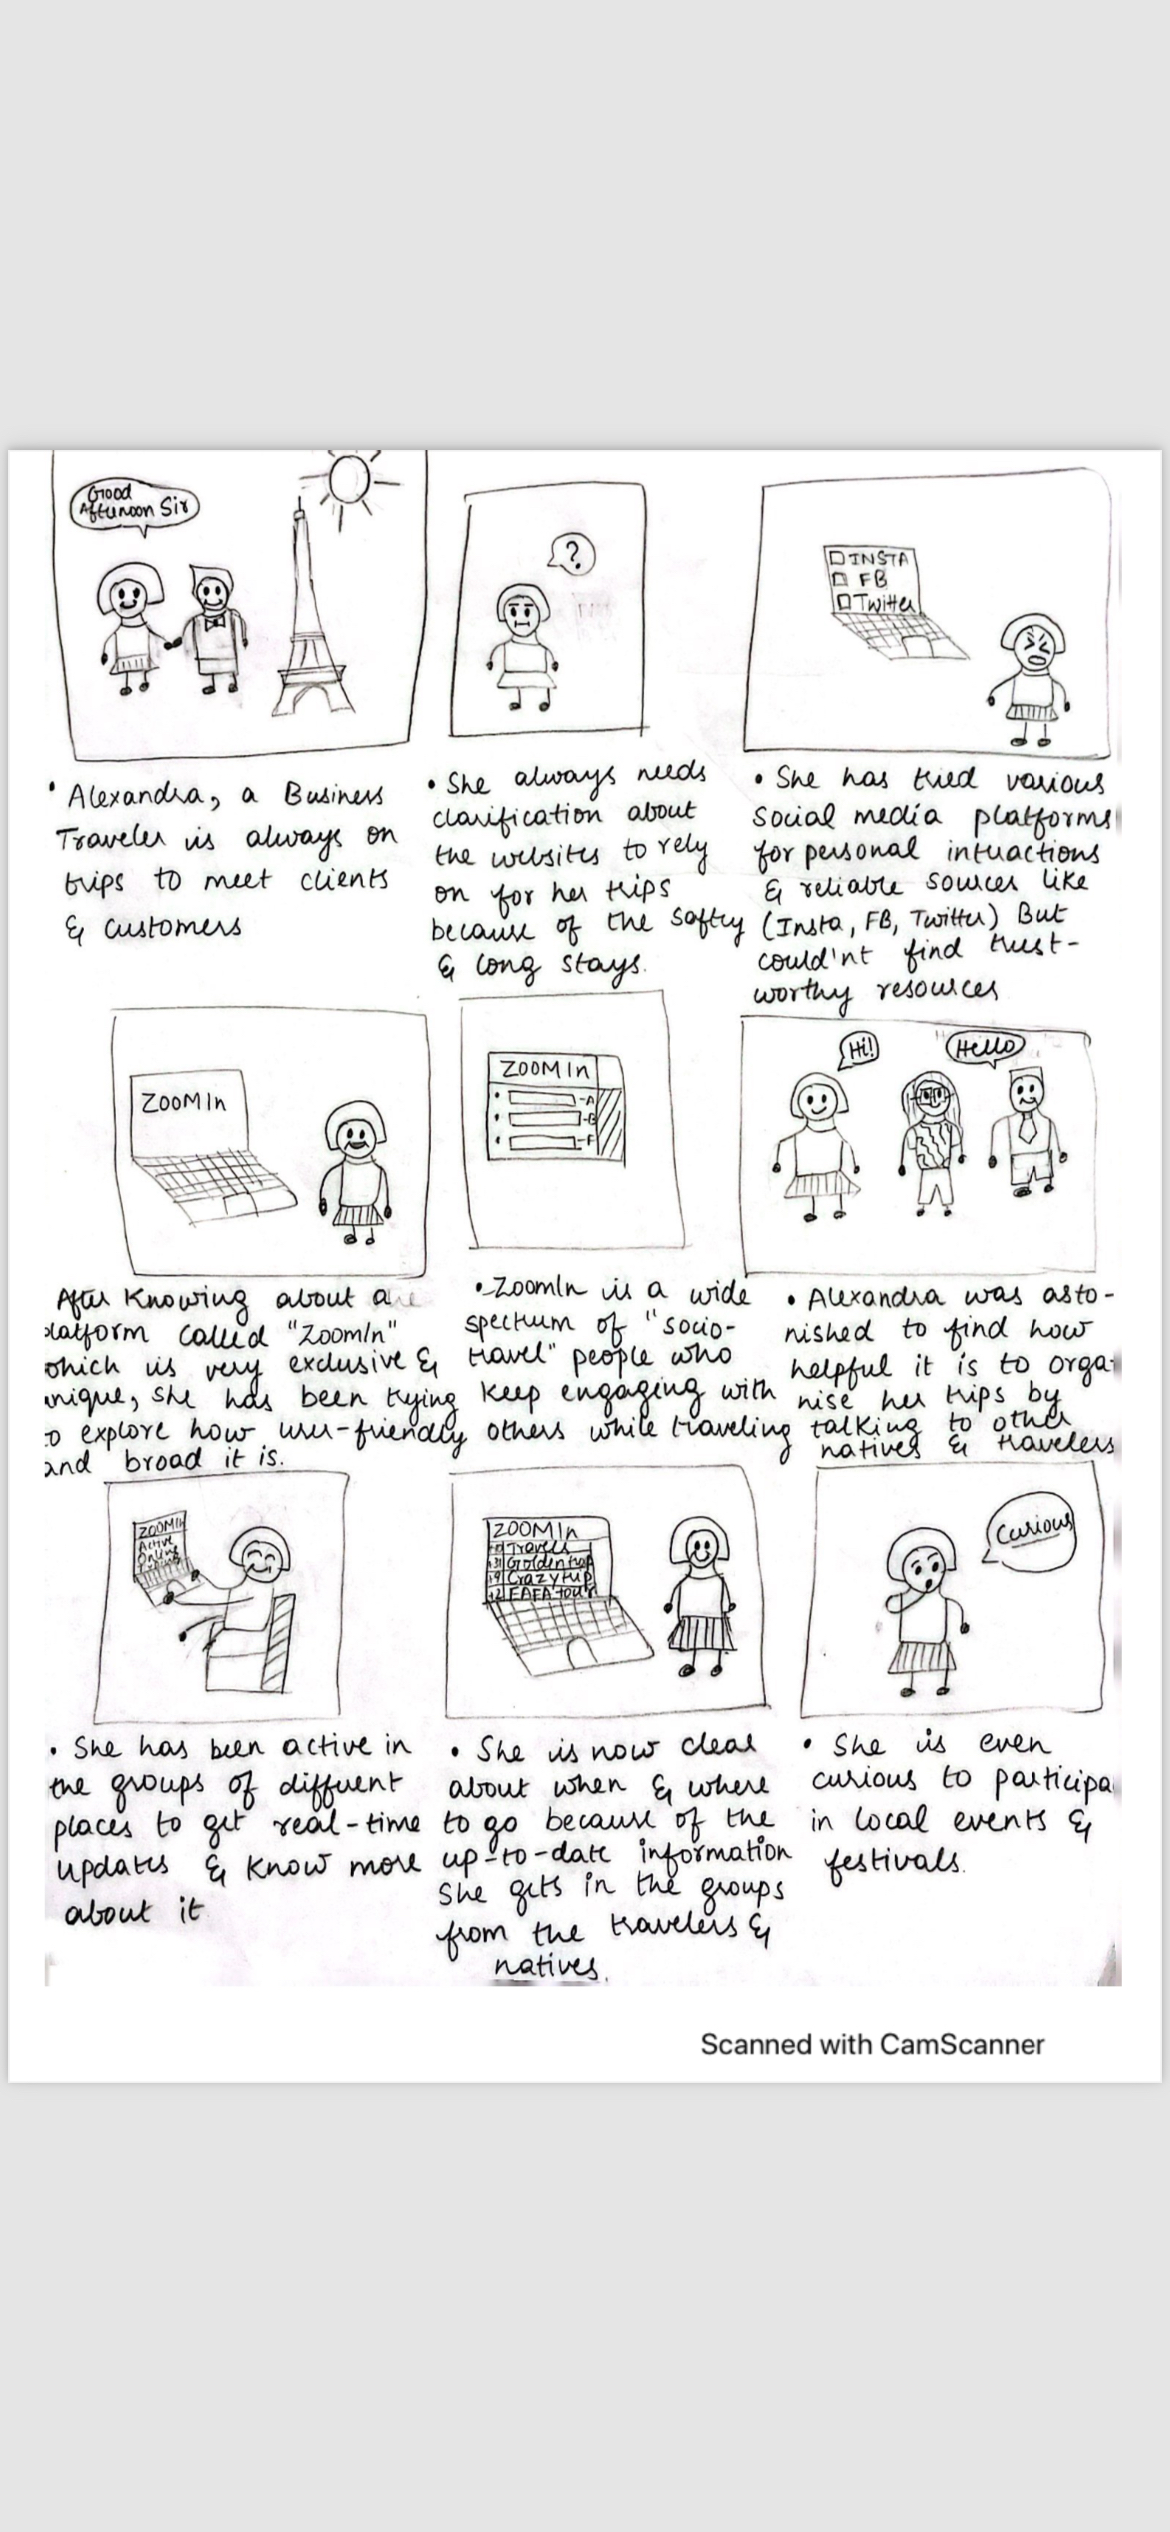 Good
Afternoon Sir
?
INSTA
FB
Twitter
• Alexandra, a Business
Traveler is always on
trips to meet clients
& customers
• She always needs
clarification about
the websites to rely
on for her trips
because of the safety
& long stays.
• She has tried various
Social media platforms
for personal interactions
& reliable sources like
(Insta, FB, Twitter) But
could'nt find trust-
worthy resources
ZOOMIn
ZOOMIn
-A
-B
-F
Hi!
Hello
After Knowing about a
platform called "ZoomIn"
which is very exclusive &
unique, she has been trying
to explore how user-friendly
and broad it is.
• ZoomIn is a wide
spectrum of "socio-
travel" people who
keep engaging with
others while traveling
• Alexandra was asto-
nished to find how
helpful it is to orga-
nise her trips by
talking to other
natives & travelers
ZOOMIn
Active
Online
ZOOMIn
Travels
Golden trip
Crazy trip
FAFA tour
Curious
• She has been active in
the groups of different
places to get real-time
updates & know more
about it
• She is now clear
about when & where
to go because of the
up-to-date information
She gets in the groups
from the travelers &
natives.
• She is even
curious to participa
in local events &
festivals.
Scanned with CamScanner